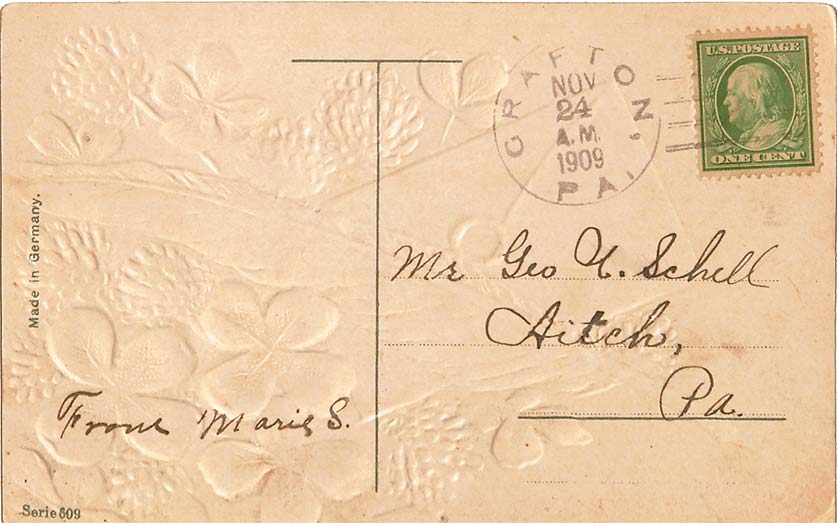 Made in Germany.
From Marie S.
Serie 609
CRAFTON, PA.
NOV
24
A.M.
1909
U.S. POSTAGE
ONE CENT
Mr Geo U. Schell
Aitch,
Pa.